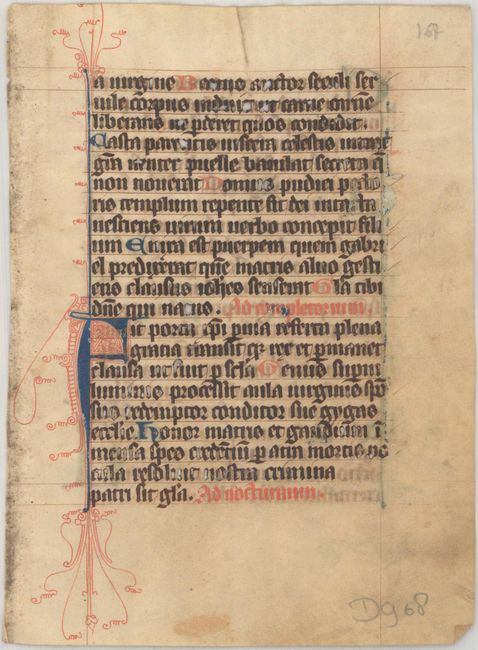 167
a virgine Beatus auctor seculi ser
uile corpus induit ut carne carnē
liberans ne perderet quos condidit.
Casta parentis viscera celestis intrat
grā venter puelle baiulat secreta q̄
non noverat Domus pudici pecto
ris templum repente fit dei intacta
nesciens virum verbo concepit fili
um Enixa est puerpera quem gabri
el predixerat quē matris alvo gesti
ens clausus iohēs senserat Gla tibi
dn̄e qui natus. Ad completorium
Fit porta xp̄i pervia referta plena
gracia transit qz rex et permanet
clausa ut fuit per scla Genus supni
luminis processit aula virginis spō
sus redemptor conditor sue gygas
ecclie Honor matris et gaudium ī
mensa spes credentium per atra mortis po
cula resolvit nostra crimina
patri sit glā. Ad nocturnum.
D968